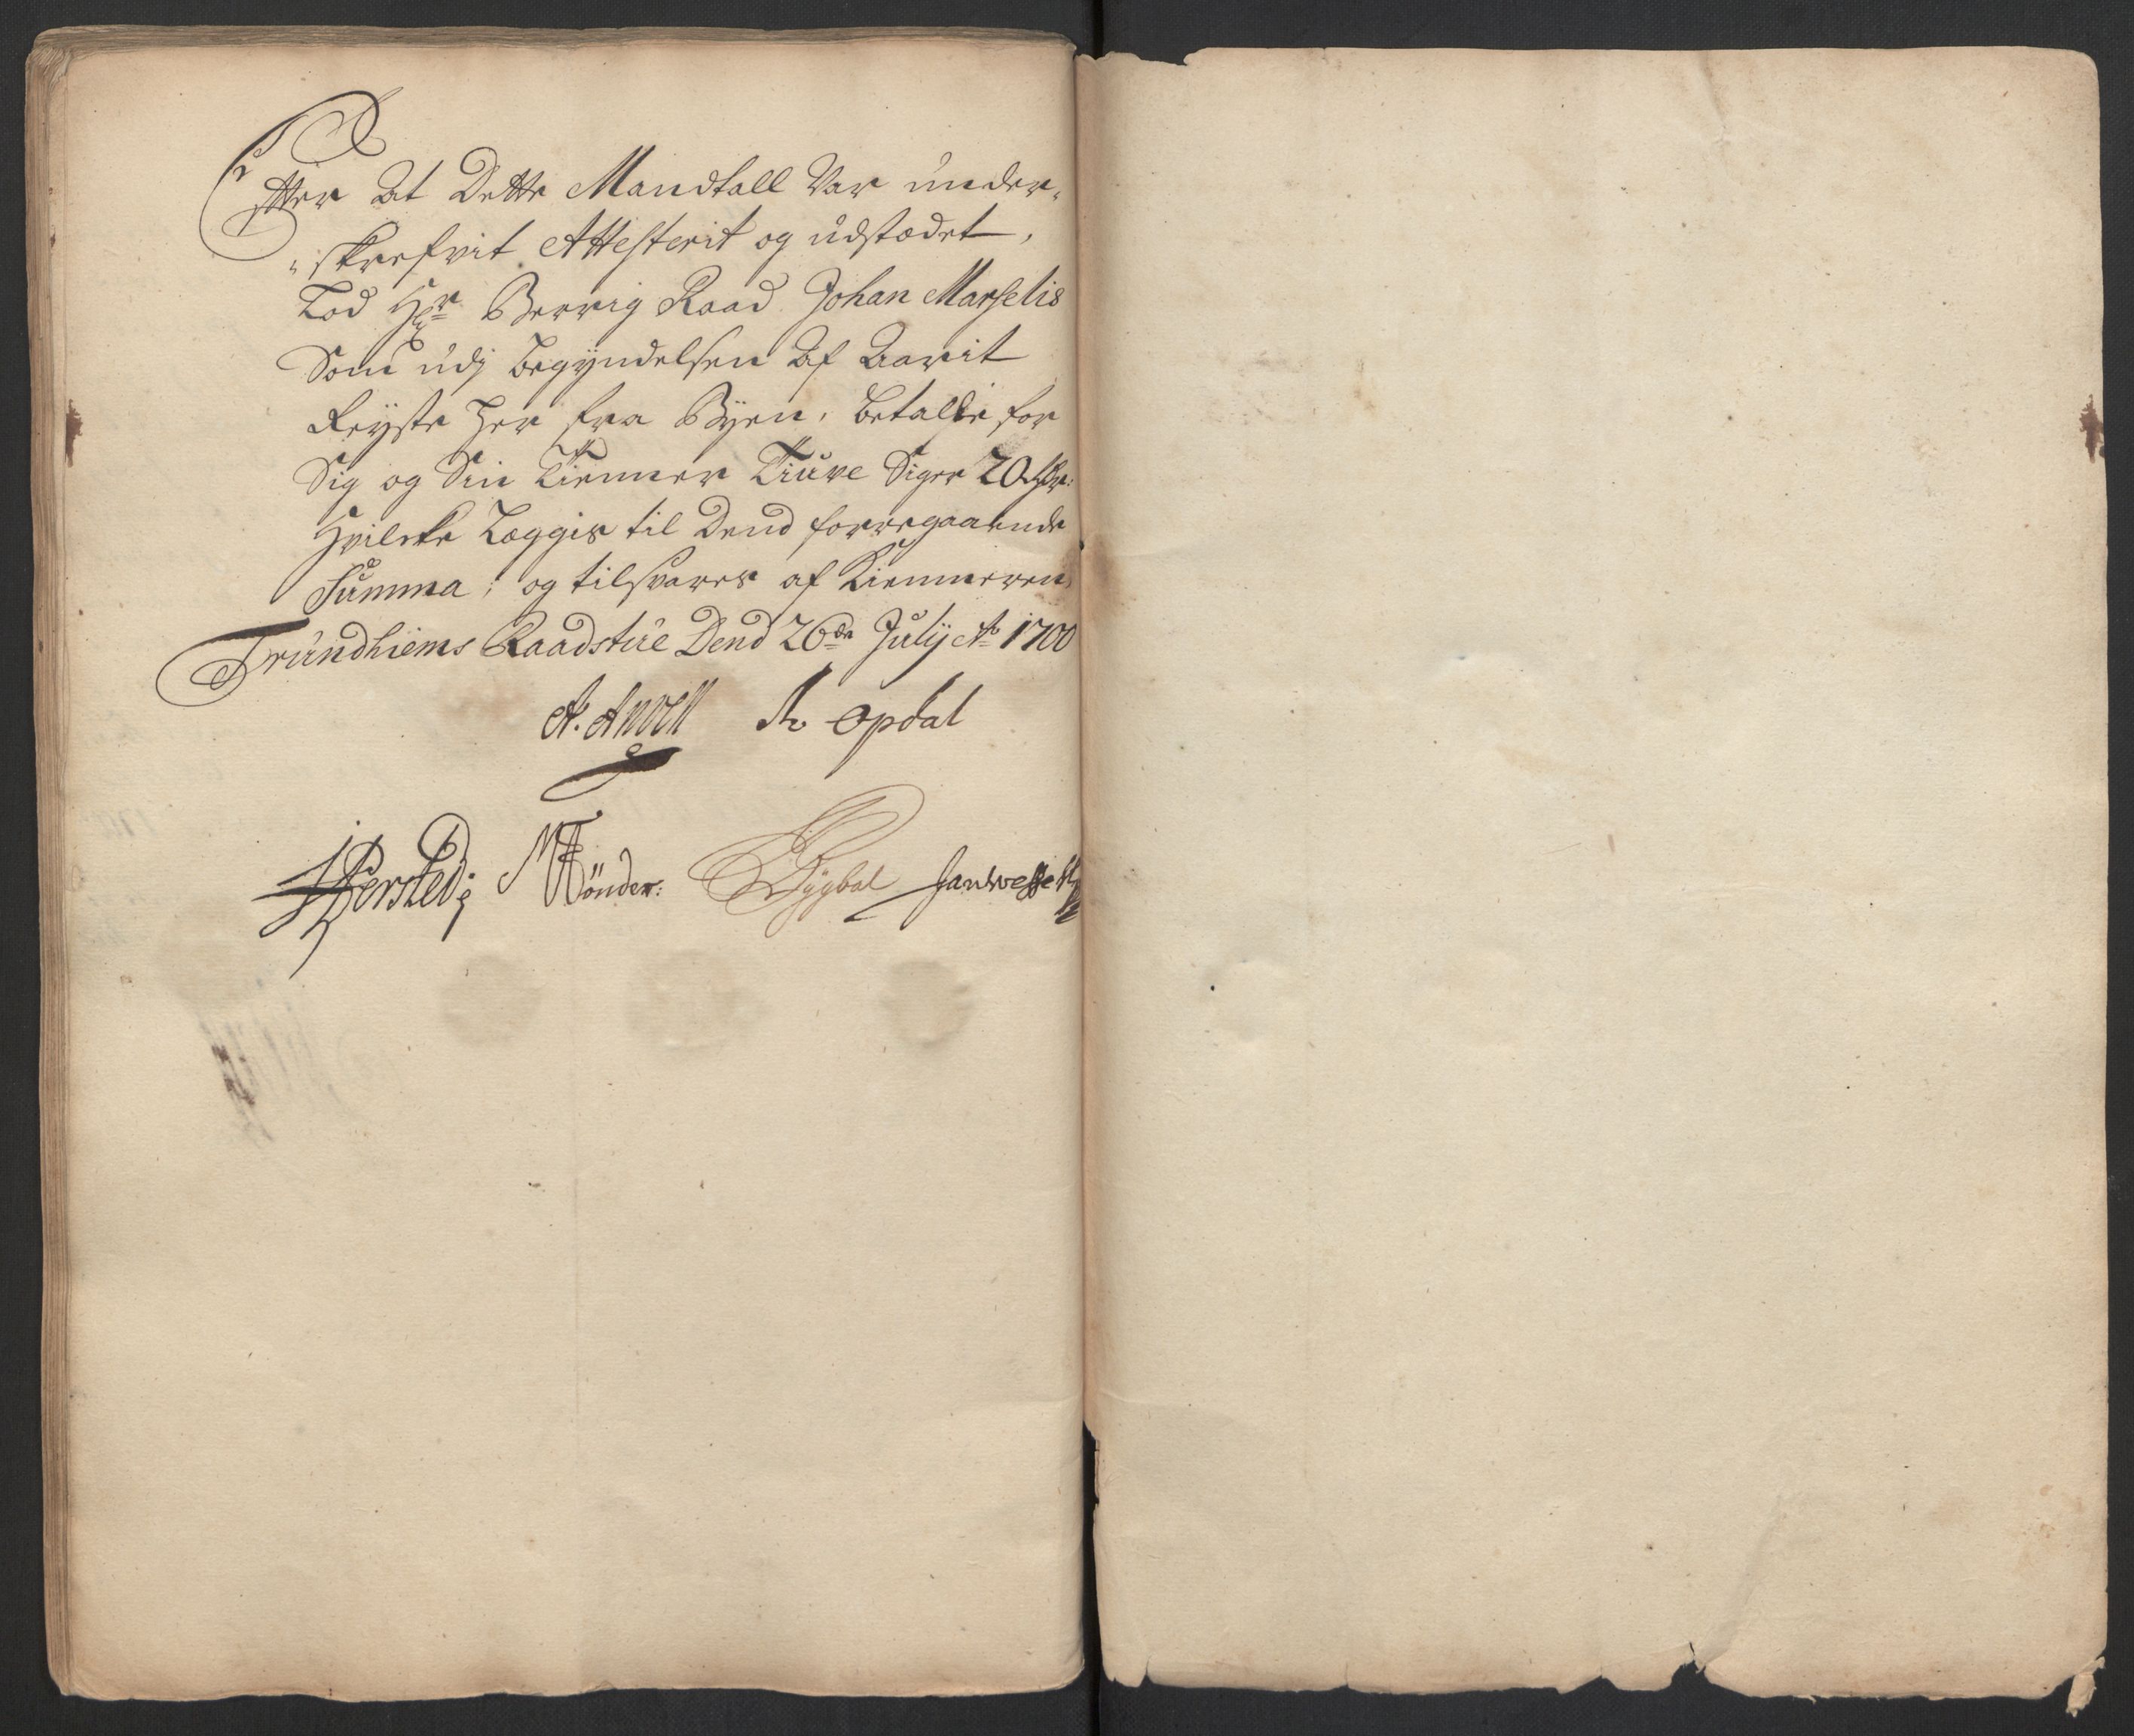 Efter At Dette Mandtall Var under-
skrefvit Attesterit og udstædet,
Lod Hr Berrig Raad Johan Marselis
Som udj begyndelsen Af Aarit
Reyste her fra Byen, betalle for
Sig og Sin Tienner Tiuve Siger 20
Hvilcke Leggis til Dend forregaaende
Summa; og tilsvares af Kiemneren
Trundhiems Raadstue Dend 26de July Ao 1700
A. Opdal
Tønder:
Jan Wessell